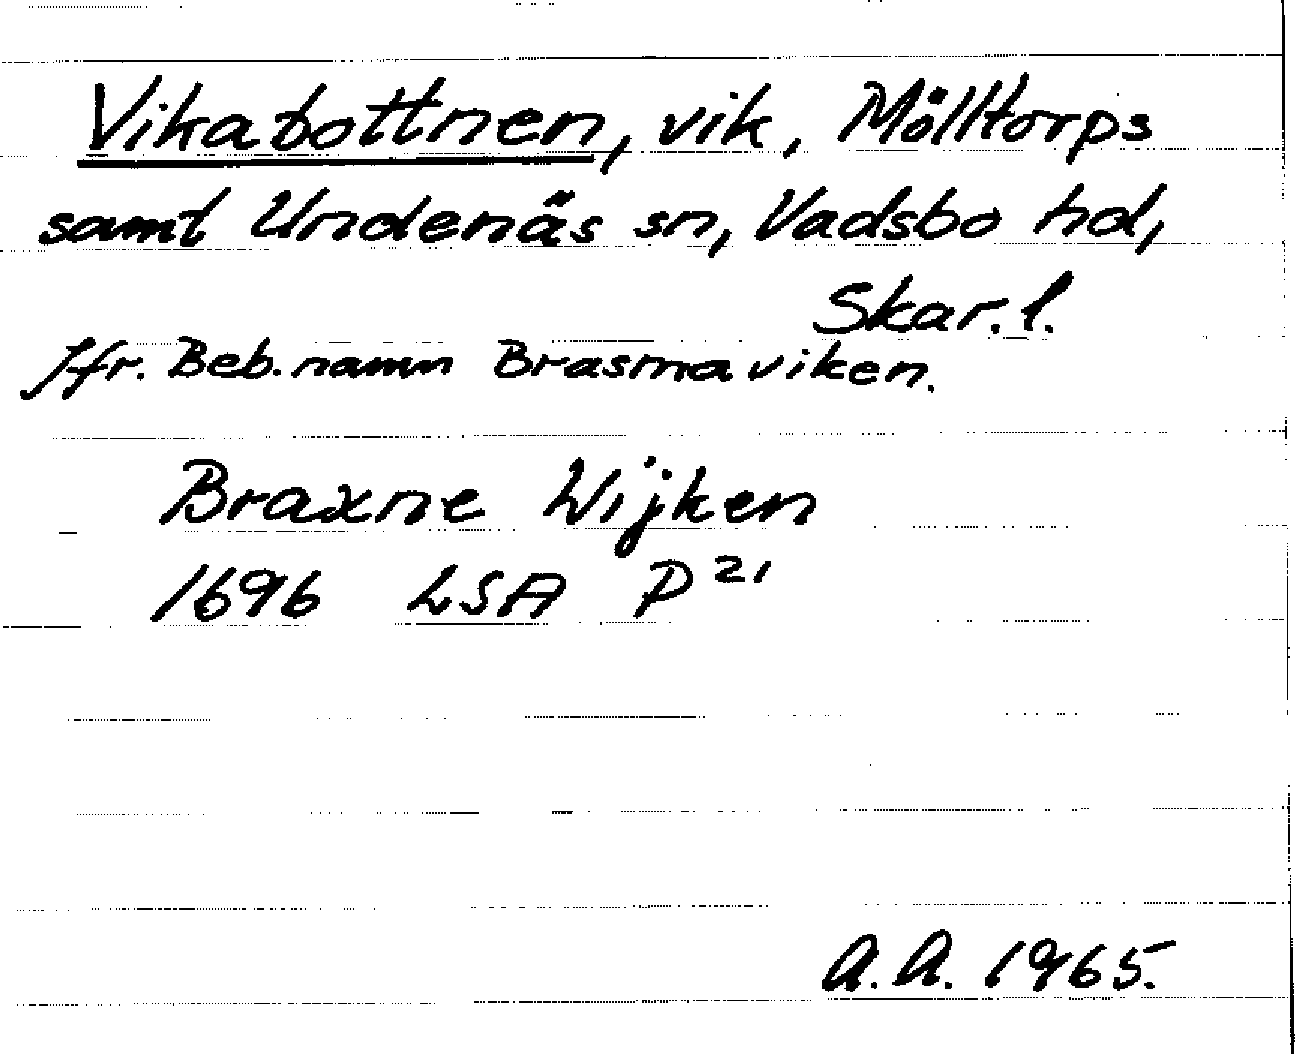 Vikabottnen, vik, Mölltorps
samt Undenäs sn, Vadsbo hd,
Skar. l.
Jfr. Beb. namn Brasmaviken.
Braxne Wijken
1696 LSA P 21
A.A. 1965.